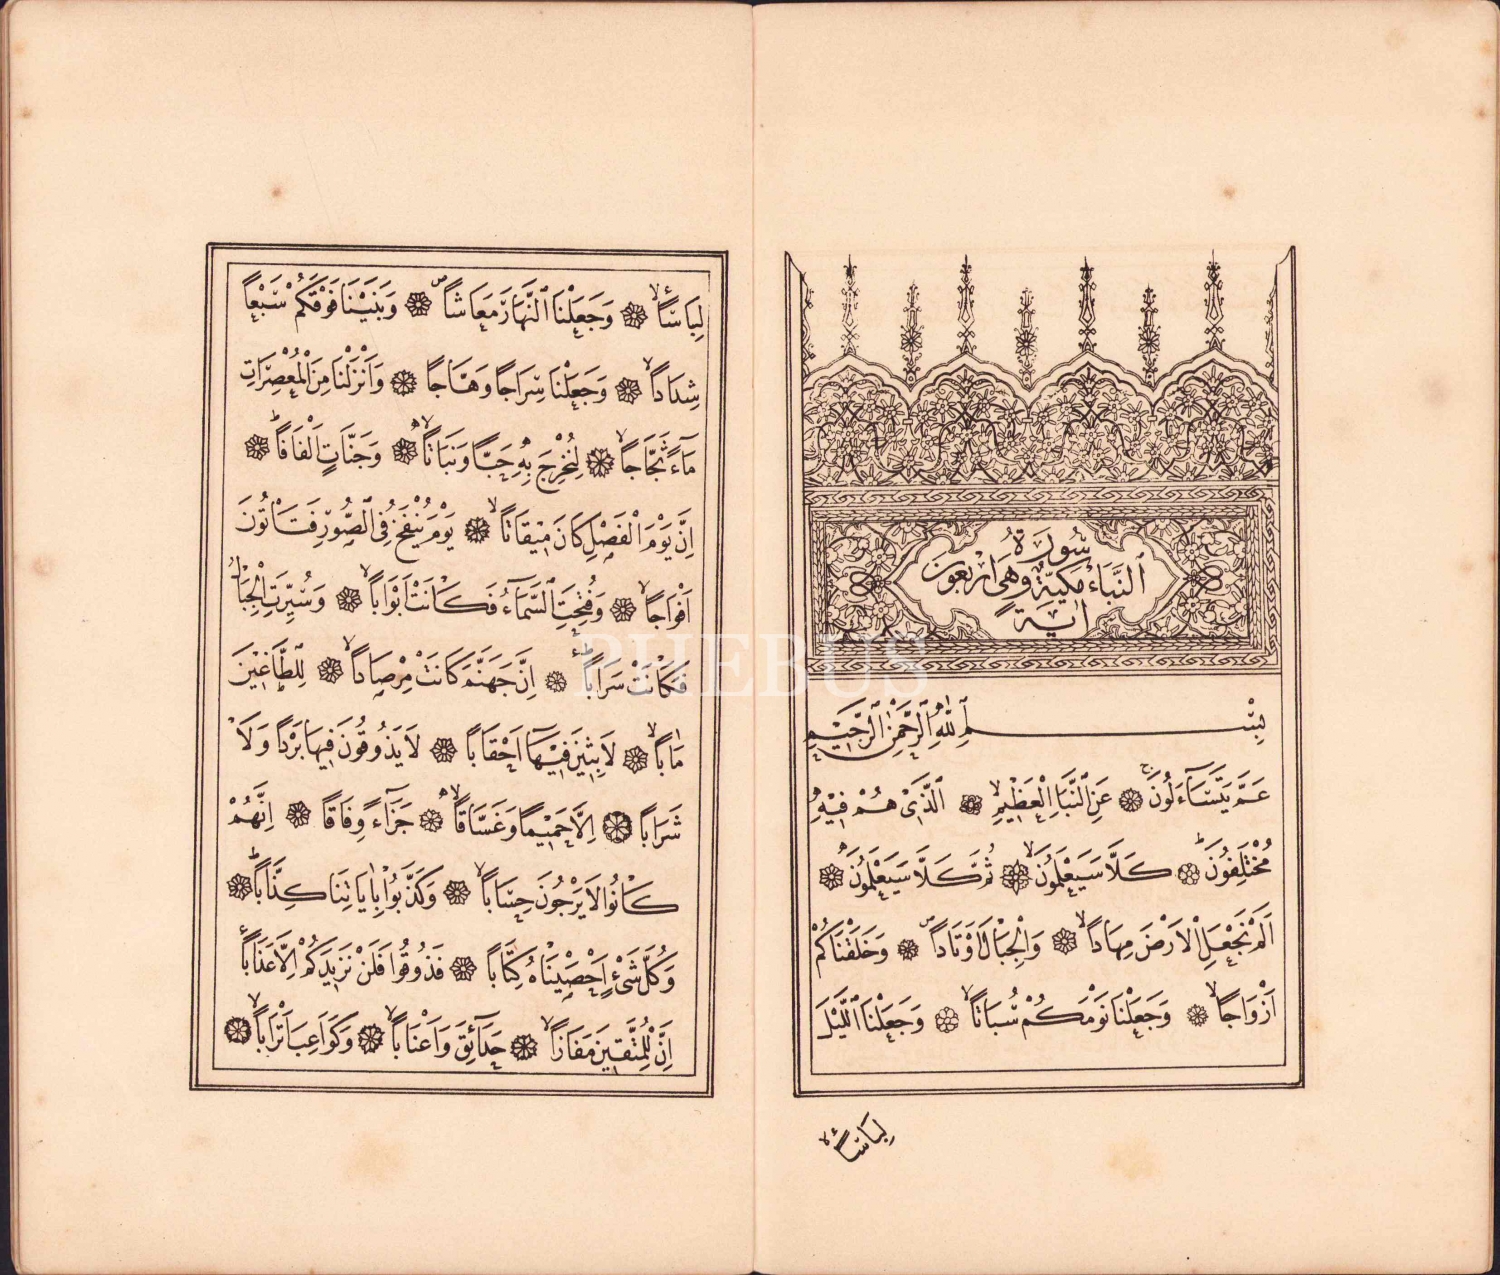 سُورَةُ
اَلنَّبَاءِ مَكِّيَّةٌ وَهِىَ اَرْبَعُونَ
اٰيَةً
بِسْمِ اللّٰهِ الرَّحْمٰنِ الرَّحِيمِ
عَمَّ يَتَسَٓاءَلُونَۚ ۝ عَنِ النَّبَأِ الْعَظِيمِۙ ۝ اَلَّذِى هُمْ فِيهِ
مُخْتَلِفُونَۜ ۝ كَلَّا سَيَعْلَمُونَۙ ۝ ثُمَّ كَلَّا سَيَعْلَمُونَ ۝
اَلَمْ نَجْعَلِ الْاَرْضَ مِهَادًاۙ ۝ وَالْجِبَالَ اَوْتَادًاۖ ۝ وَخَلَقْنَاكُمْ
اَزْوَاجًاۙ ۝ وَجَعَلْنَا نَوْمَكُمْ سُبَاتًاۙ ۝ وَجَعَلْنَا الَّيْلَ
لِبَاسًاۙ
لِبَاسًاۙ ۝ وَجَعَلْنَا النَّهَارَ مَعَاشًاۖ ۝ وَبَنَيْنَا فَوْقَكُمْ سَبْعًا
شِدَادًاۙ ۝ وَجَعَلْنَا سِرَاجًا وَهَّاجًا ۝ وَاَنْزَلْنَا مِنَ الْمُعْصِرَاتِ
مَٓاءً ثَجَّاجًاۙ ۝ لِنُخْرِجَ بِهِ حَبًّا وَنَبَاتًاۙ ۝ وَجَنَّاتٍ اَلْفَافًاۜ ۝
اِنَّ يَوْمَ الْفَصْلِ كَانَ مِيقَاتًاۙ ۝ يَوْمَ يُنْفَخُ فِى الصُّورِ فَتَأْتُونَ
اَفْوَاجًاۙ ۝ وَفُتِحَتِ السَّمَٓاءُ فَكَانَتْ اَبْوَابًاۙ ۝ وَسُيِّرَتِ الْجِبَالُ
فَكَانَتْ سَرَابًاۜ ۝ اِنَّ جَهَنَّمَ كَانَتْ مِرْصَادًاۙ ۝ لِلطَّاغِينَ
مَاٰبًاۙ ۝ لَابِثِينَ فِيهَٓا اَحْقَابًا ۝ لَا يَذُوقُونَ فِيهَا بَرْدًا وَلَا
شَرَابًا ۝ اِلَّا حَمِيمًا وَغَسَّاقًاۙ ۝ جَزَٓاءً وِفَاقًا ۝ اِنَّهُمْ
كَانُوا لَا يَرْجُونَ حِسَابًاۙ ۝ وَكَذَّبُوا بِاٰيَاتِنَا كِذَّابًاۜ ۝
وَكُلَّ شَىْءٍ اَحْصَيْنَاهُ كِتَابًا ۝ فَذُوقُوا فَلَنْ نَزِيدَكُمْ اِلَّا عَذَابًا
اِنَّ لِلْمُتَّقِينَ مَفَازًاۙ ۝ حَدَٓائِقَ وَاَعْنَابًاۙ ۝ وَكَوَاعِبَ اَتْرَابًاۙ ۝
PHEBUS